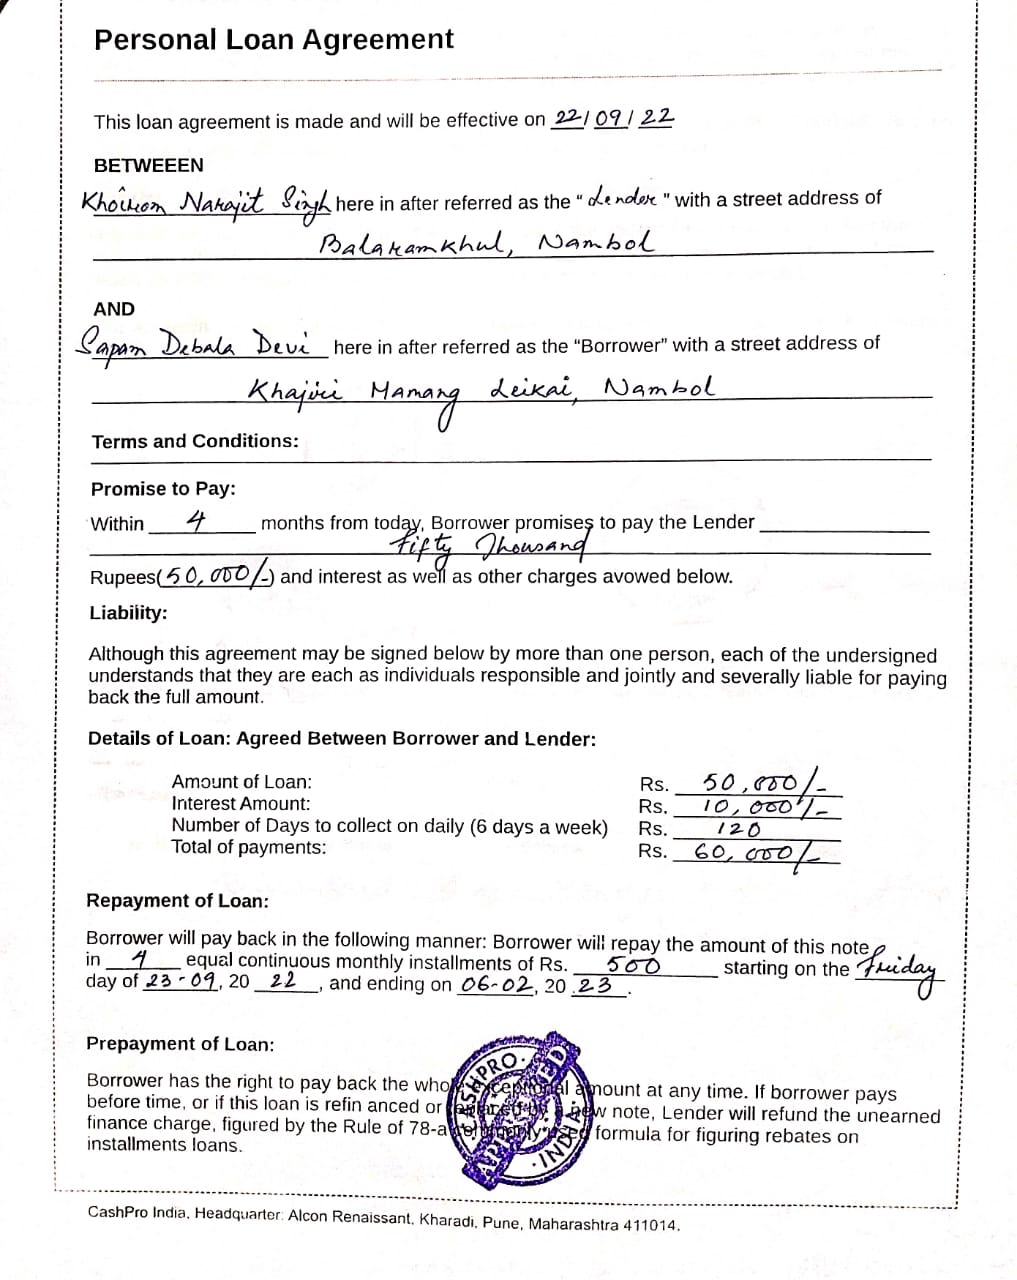 Personal Loan Agreement
This loan agreement is made and will be effective on 22/09/22
BETWEEEN
Khoirom Narajit Singh here in after referred as the "Lender" with a street address of
Balaramkhul, Nambol
AND
Sapam Debala Devi here in after referred as the "Borrower" with a street address of
Khajiri Mamang Leikai, Nambol
Terms and Conditions:
Promise to Pay:
Within 4 months from today, Borrower promises to pay the Lender
Fifty Thousand
Rupees(50,000/-) and interest as well as other charges avowed below.
Liability:
Although this agreement may be signed below by more than one person, each of the undersigned
understands that they are each as individuals responsible and jointly and severally liable for paying
back the full amount.
Details of Loan: Agreed Between Borrower and Lender:
Amount of Loan: Rs. 50,000/-
Interest Amount: Rs. 10,000/-
Number of Days to collect on daily (6 days a week) Rs. 120
Total of payments: Rs. 60,000/-
Repayment of Loan:
Borrower will pay back in the following manner: Borrower will repay the amount of this note
in 4 equal continuous monthly installments of Rs. 500 starting on the Friday
day of 23-09, 20 22, and ending on 06-02, 20 23.
Prepayment of Loan:
CASHPRO
INDIA
APPROVED
Borrower has the right to pay back the whole exceptional amount at any time. If borrower pays
before time, or if this loan is refin anced or replaced by a new note, Lender will refund the unearned
finance charge, figured by the Rule of 78-a commonly used formula for figuring rebates on
installments loans.
CashPro India, Headquarter: Alcon Renaissant, Kharadi, Pune, Maharashtra 411014.